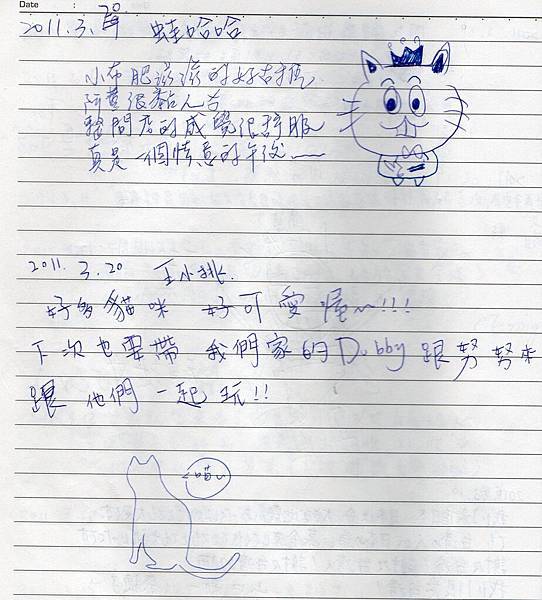 Date
2011.3.20 蛙哈哈
小布肥滋滋的好好摸
阿黃很黏人吉
整間店的感覺很舒服
真是一個愜意的午後~~
2011. 3.20 王小桃.
好多貓咪 好可愛喔~!!!
下次也要帶 我們家的Dubby 跟努努來
跟他們一起玩!!
喵~